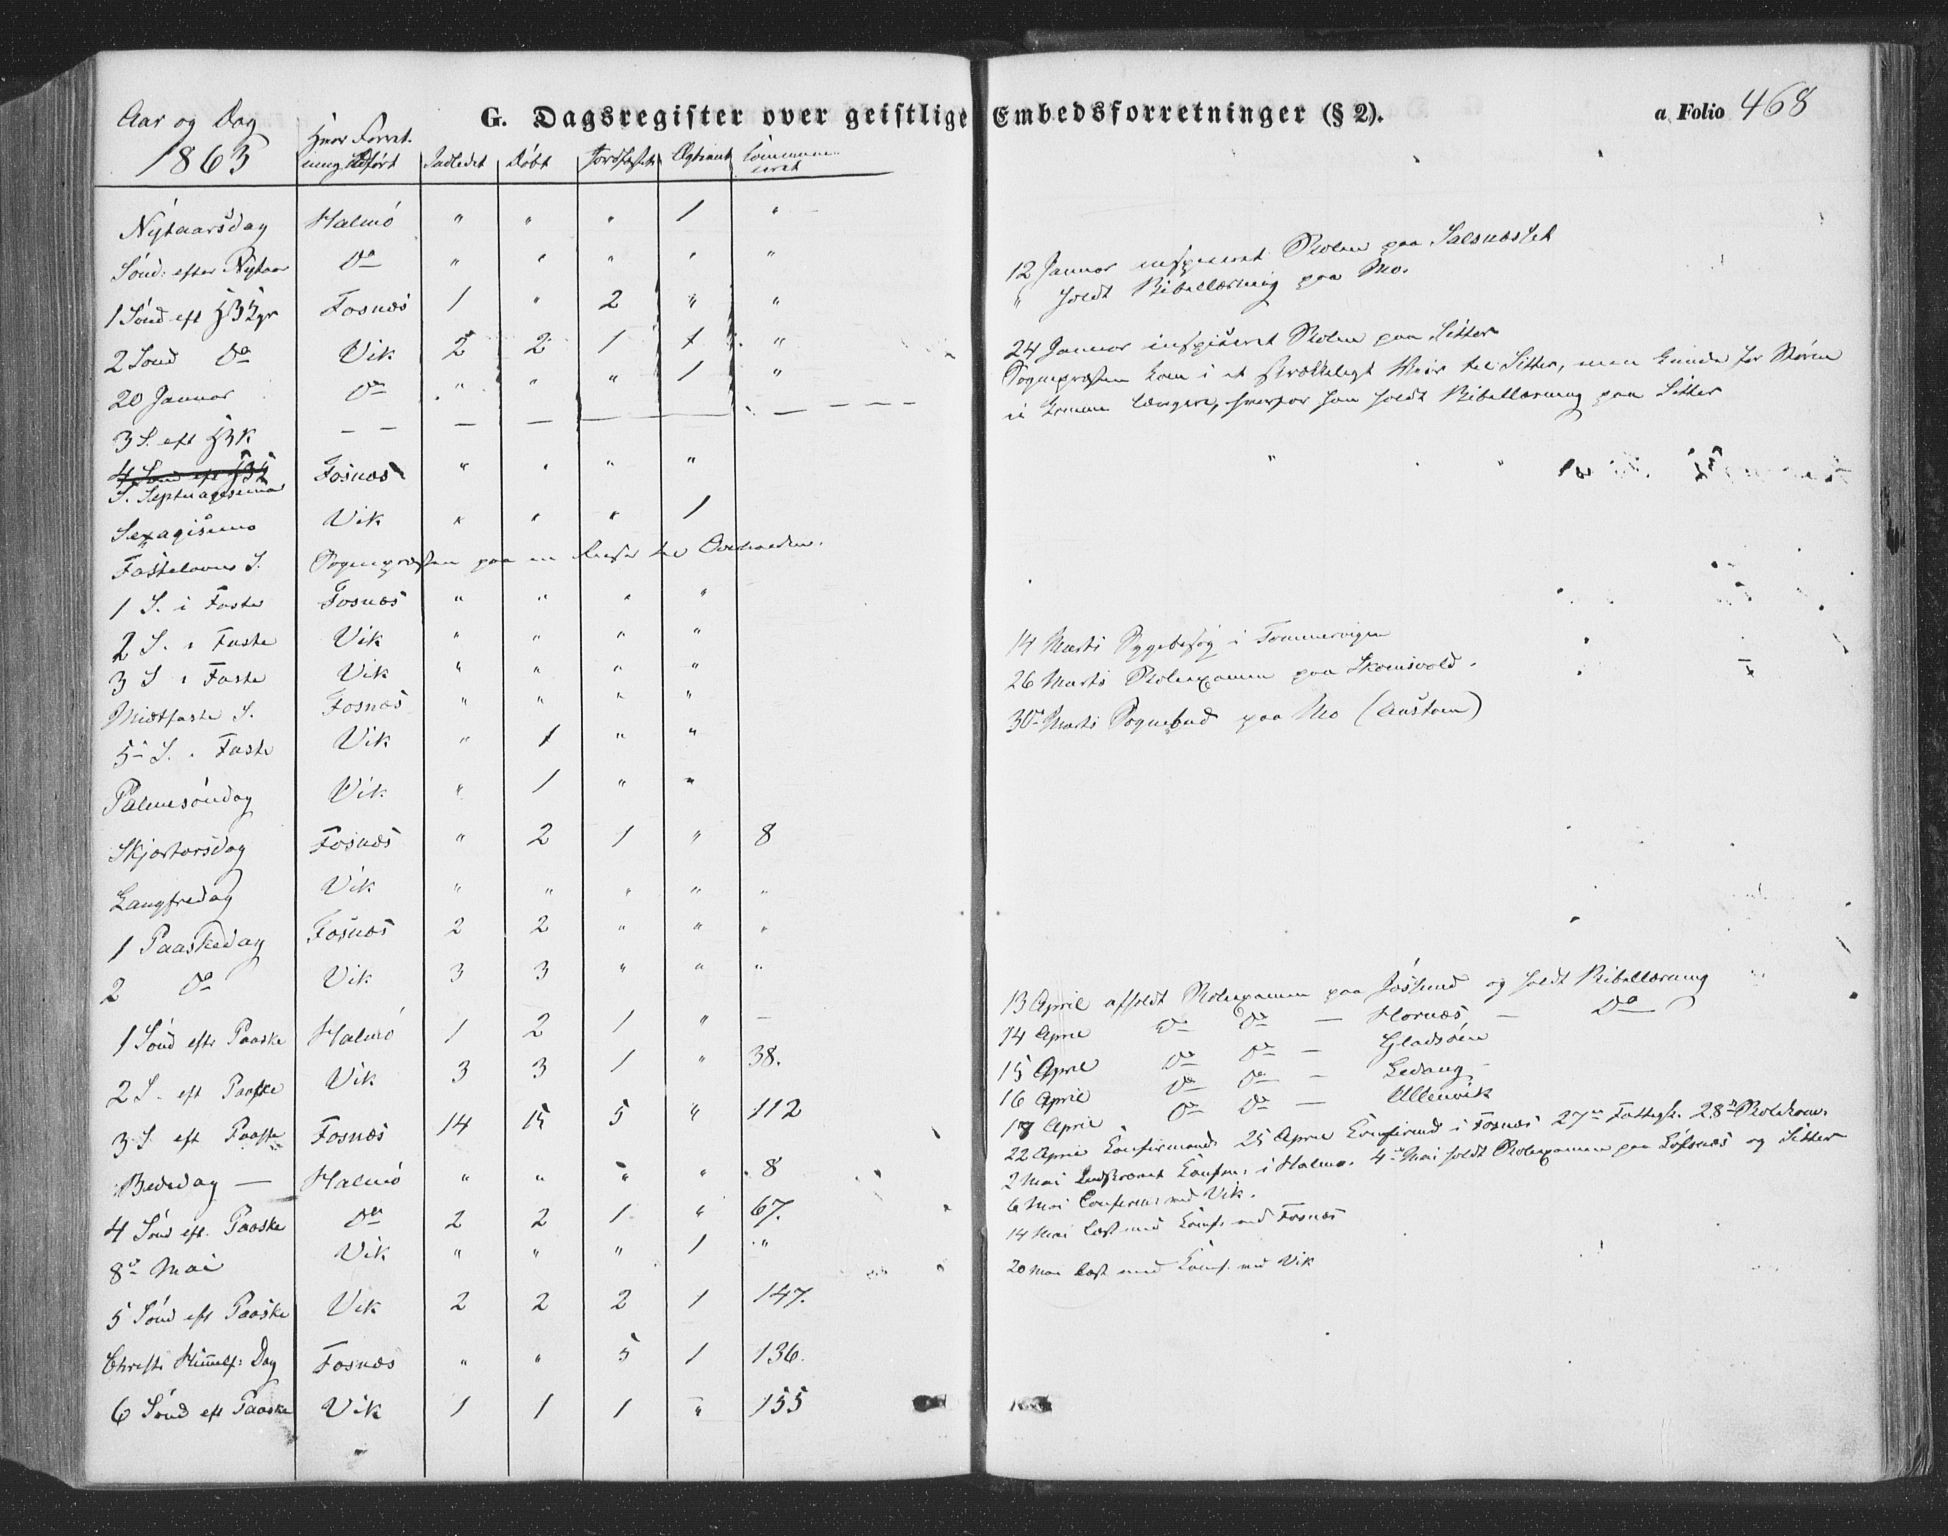 G. Dagsregister over geistlige Embedsforretninger (§ 2).
a Folio 468
Aar og Dag
1863
Hvor Forret-
ning udført
Indledet Døbt Jordfæstet Ægteviet Communi-
ceret
Nytaarsdag Halmö " " " 1 "
Sönd: efter Nytaar Do " " " " "
1 Sönd eft H3K Fosnæs 1 " 2 " "
2 Sönd Do Vik 2 2 1 1 "
20 Januar Do " " " 1 "
3 S. eft H3K — — — —
4 Sönd eft H3K
S. Septuagesima Fosnæs " " " "
Sexagisima Vik " " " 1
Fastelavns S. Sognepræsten paa en Reise til
1 S. i Faste Fosnæs " " " "
2 S. i Faste Vik " " " "
3 S i Faste Vik " " " "
Midtfaste S. Fosnæs " " " "
5te S. i Faste Vik " 1 " "
Palmesöndag Vik " 1 " "
Skjærtorsdag Fosnæs " 2 1 " 8
Langfredag Vik " " " " "
1 Paaskedag Fosnæs 2 2 " " "
2 Do Vik 3 3 " " "
1 Sönd eftr Paaske Halmö 1 2 1 " —
2 S. eft Paaske Vik 3 3 1 " 38.
3 S. eft Paaske Fosnæs 14 15 5 " 112
Bededag — Halmö " " " " 8
4 Sönd eft. Paaske Do 2 2 1 " 67.
8de Mai Vik " " " 1 "
5 Sönd eft Paaske Vik 2 2 2 1 147.
Christi Himmelf: Dag Fosnæs " " 5 1 136.
6 Sönd eft Paaske Vik 1 1 1 " 155
12 Januar inspiceret Skolen paa Salsnæslet
" holdt Bibellæsning paa Mo.
24 Januar inspiceret Skolen paa Sitter
Sognepræsten kom i et skrækkeligt Veir til Sitter, men kunde for Storm
ei komme længere, hvorfor han holdt Bibellæsning paa Sitter
14 Marts Sygebesög i Tommervigen
26 Marts Skoleexamen paa Skomsvold.
30te Marts Sognebud paa Mo
13 April afholdt Skoleexamen paa Jöslund og holdt Bibellæsning
14 April Do Do — Hornæs — Do
15 April Do Do — Gladsöen
16 April Do Do — Ledang
17 April Do Do — Ullenvik
22 April Konfirmand. 25 April Konfirmd i Fosnæs 27de Fattigk. 28de Skolekom.
2 Mai Indskrevet Konfirm. i Halmö. 4de Mai holdt Skoleexamen paa Löfsnæs og Sitter
6 Mai Confirm: ved Vik.
14 Mai læst med Konf. ved Fosnæs
20 Mai læst med Konf. ved Vik